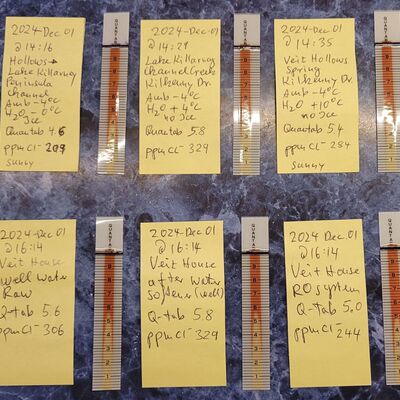 2024-Dec 01
@ 14:16
Hollows→
Lake Killarney
Peninsula
Channel
Amb -4°C
H2O - 0°C
Ice
Quantab 4.6
ppm Cl- 209
Sunny
QUANTAB
2024-Dec 01
@ 14:29
Lake Killarney
Channel Creek
Kilkenny Dr.
Amb -4°C
H2O + 4°C
no Ice
Quantab 5.8
ppm Cl- 329
QUANTAB
2024-Dec 01
@ 14:35
Veit Hollows
Spring
Kilkenny Dr.
Amb -4°C
H2O +10°C
no Ice
Quantab 5.4
ppm Cl- 284
Sunny
QUANTAB
2024-Dec 01
@ 16:14
Veit House
well water
Raw
Q-tab 5.6
ppm Cl- 306
QUANTAB
2024-Dec 01
@ 16:14
Veit House
after water
softener (well)
Q-tab 5.8
ppm Cl- 329
QUANTAB
2024-Dec 01
@ 16:14
Veit House
RO system
Q-tab 5.0
ppm Cl- 244
QUANTAB